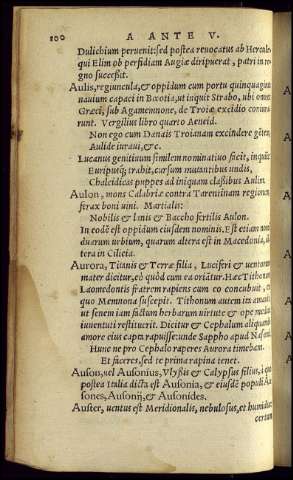 100 A ANTE V.
Dulichium peruenit: sed postea reuocatus ab Hercule
qui Elim ob perfidiam Augiæ diripuerat, patri in re
gno successit.
Aulis, regiuncula, & oppidum cum portu quinquaginta
nauium capaci in Bœotia, ut inquit Strabo, ubi omnes
Græci, sub Agamemnone, de Troiæ excidio coniura
runt. Vergilius libro quarto Aeneid.
Non ego cum Danais Troianam excindere gentem
Aulide iuraui, &c.
Lucanus genitiuum similem nominatiuo fecit, inquit
Euripusque trahit, cursum mutantibus undis,
Chalcidicas puppes ad iniquam classibus Aulim.
Aulon, mons Calabriæ contra Tarentinam regionem
ferax boni uini. Martialis:
Nobilis & lanis & Baccho fertilis Aulon.
In eodē est oppidum eiusdem nominis. Est etiam nomen
duarum urbium, quarum altera est in Macedonia, al
tera in Cilicia.
Aurora, Titanis & Terræ filia, Luciferi & uentorum
mater dicitur, eò quòd cum ea oriātur. Hæc Tithonum
Laomedontis fratrem rapiens cum eo concubuit, ex
quo Memnona suscepit. Tithonum autem ita amauit
ut senem iam factum herbarum uirtute & ope medica
iuuentuti restituerit. Dicitur & Cephalum aliquando
amore eius capta rapuisse: unde Sappho apud Nasonem
Hunc ne pro Cephalo raperes Aurora timebam.
Et faceres, sed te prima rapina tenet.
Auson, uel Ausonius, Vlyssis & Calypsus filius, à quo
postea Italia dicta est Ausonia, & eiusdē populi Au
sones, Ausonij, & Ausonides.
Auster, uentus est Meridionalis, nebulosus, et humidus:
certum